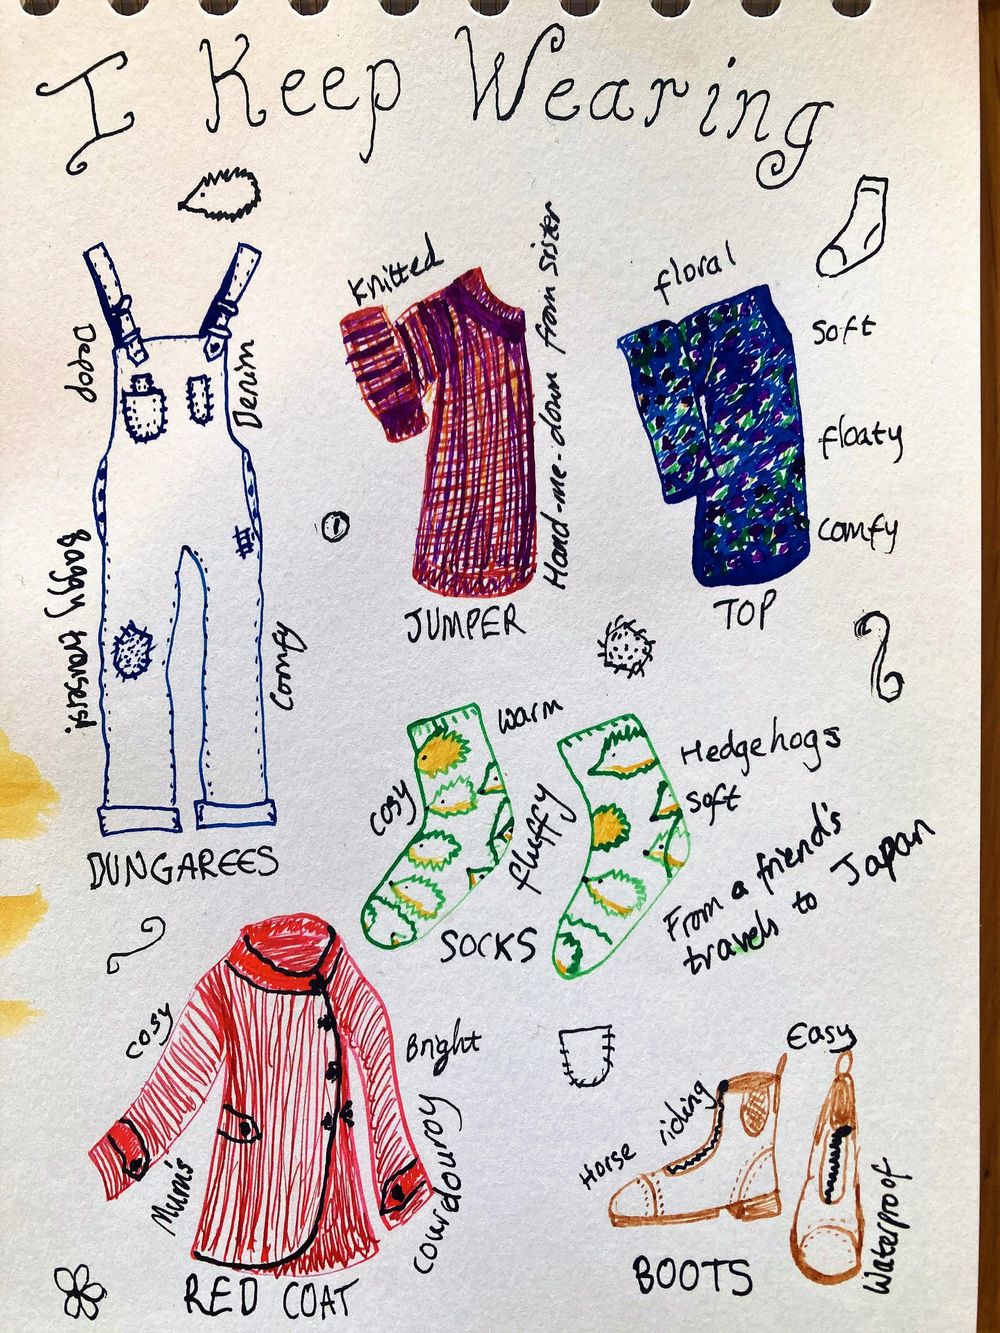 I Keep Wearing
Depop
Denim
Baggy trousers!
Comfy
DUNGAREES
Knitted
Hand-me-down from sister
JUMPER
floral
soft
floaty
comfy
TOP
warm
cosy
fluffy
Hedgehogs
soft
From a friend's
travels to Japan
SOCKS
cosy
Bright
Mum's
courdouroy
RED COAT
Easy
Horse riding
Waterproof
BOOTS